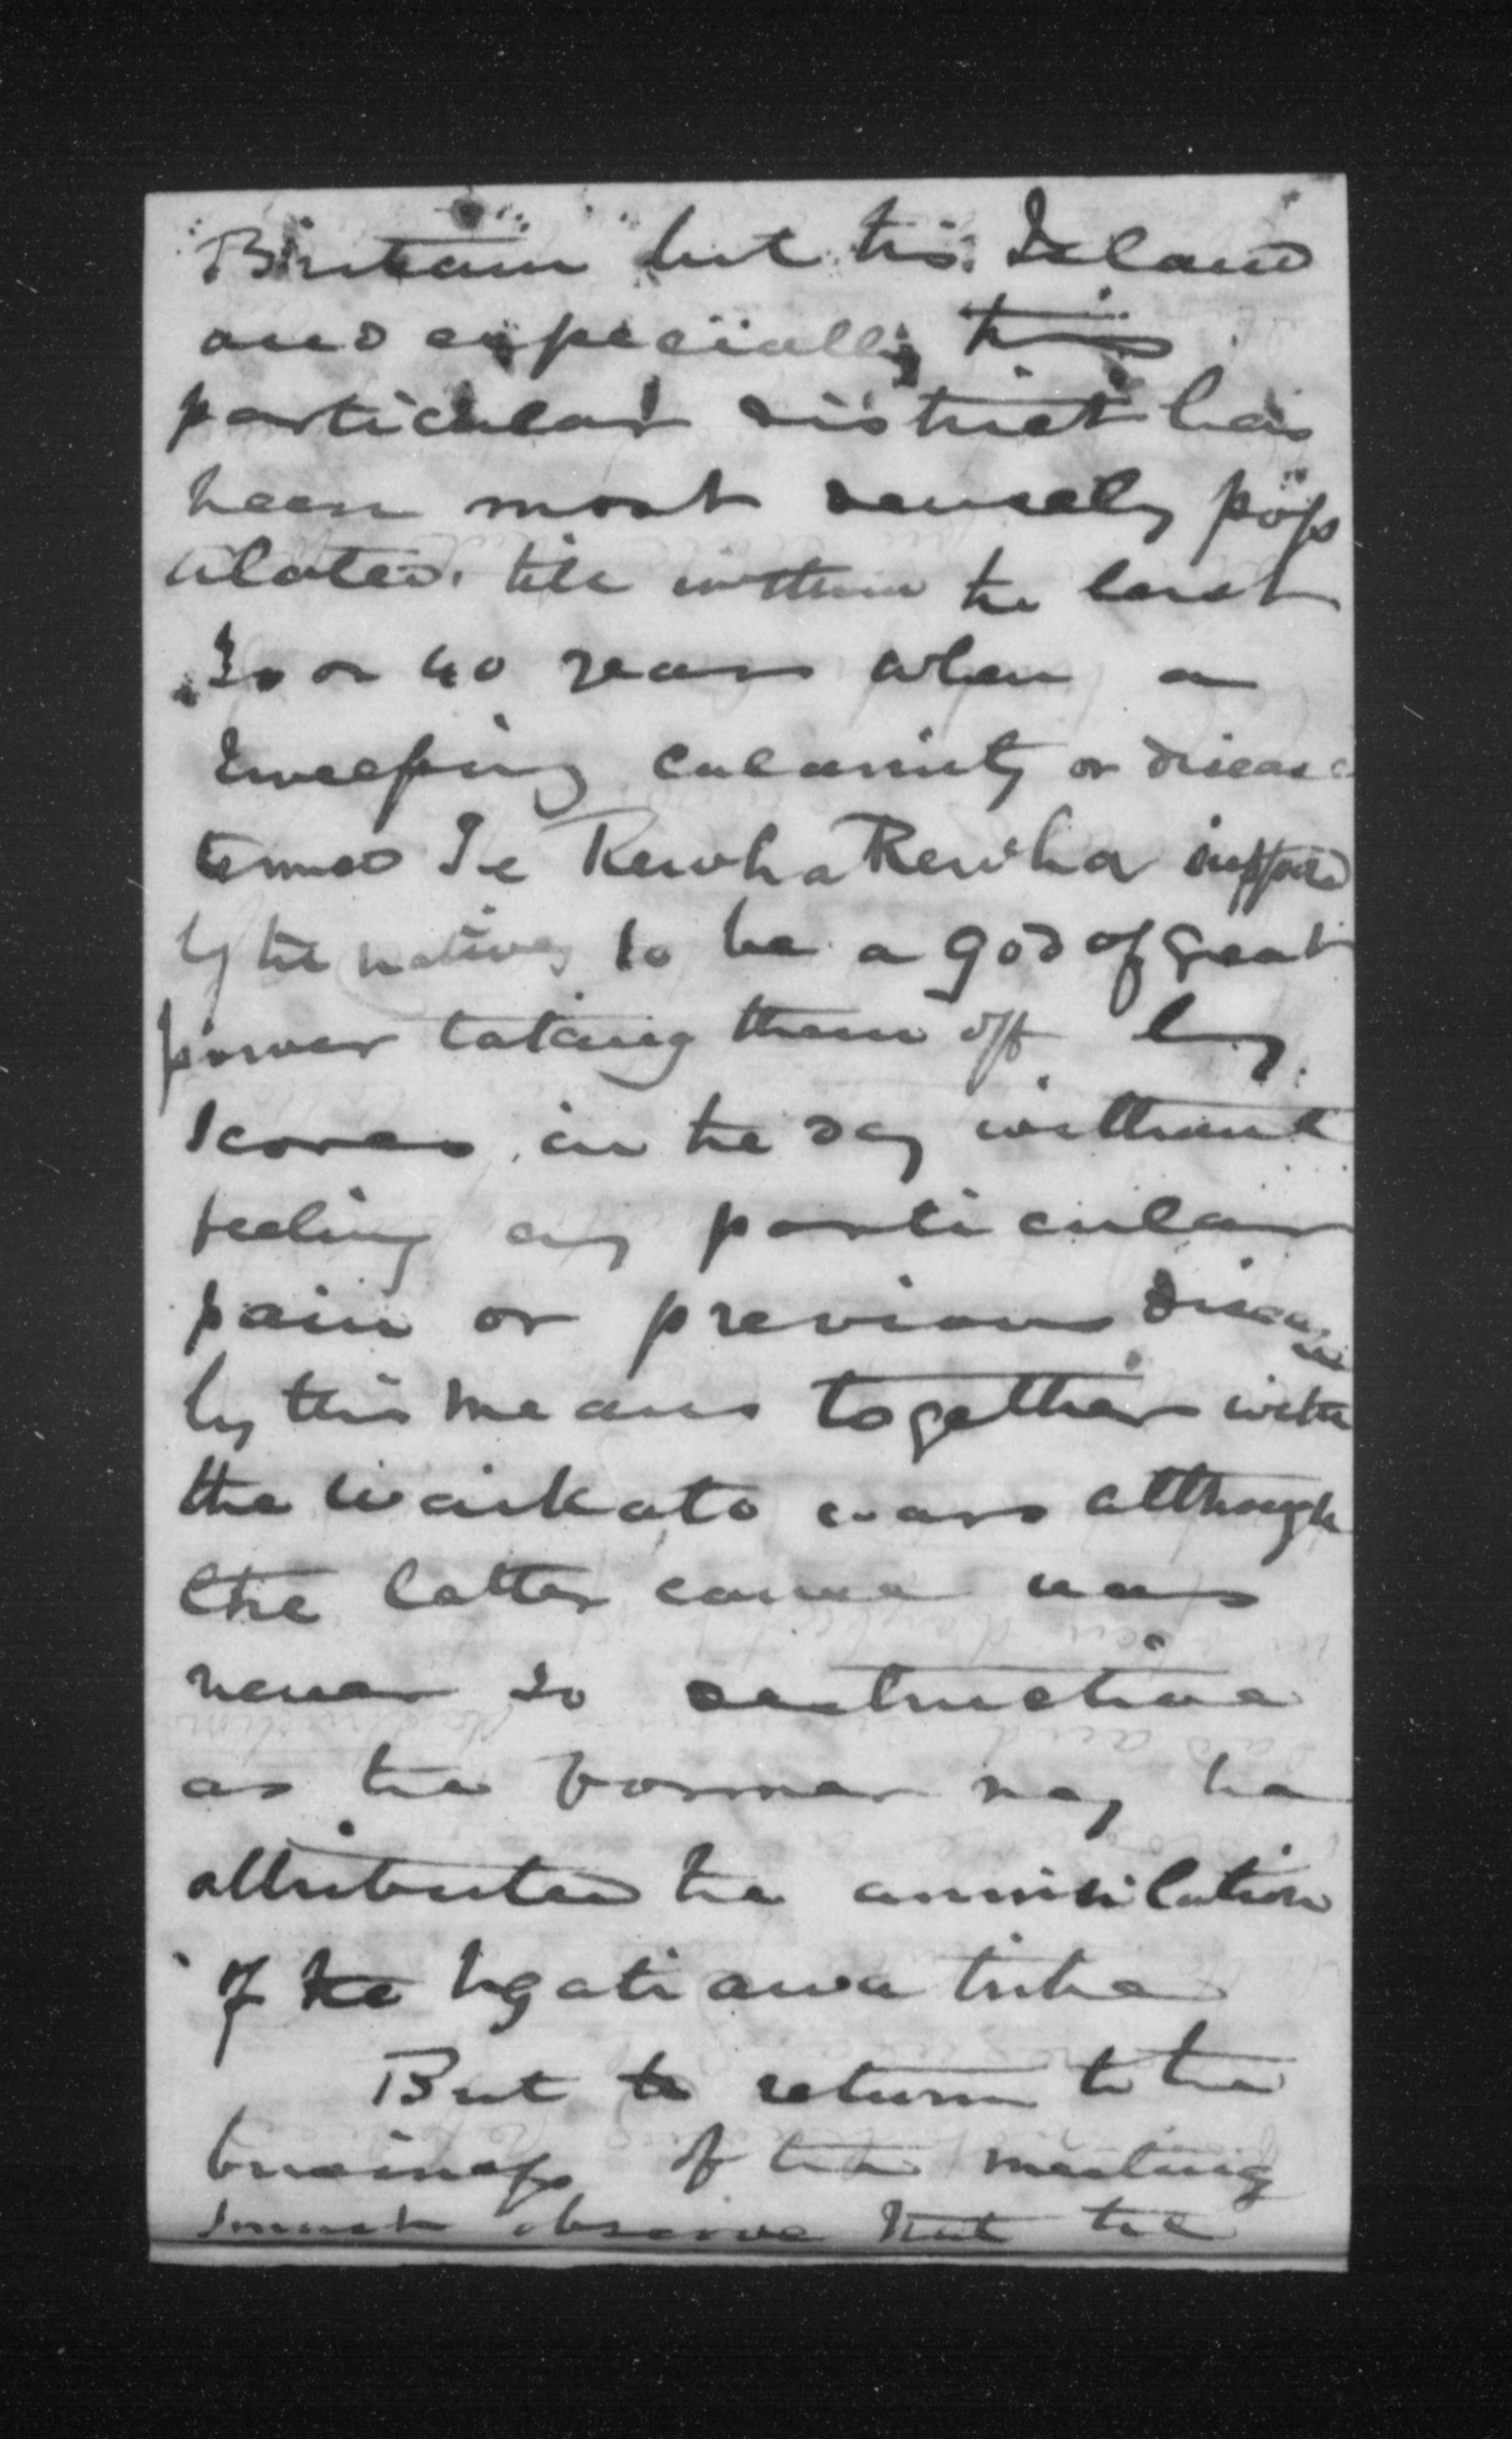 Britain but this Island
and especially this
particular district has
been most densely pop
ulated till within the last
30 or 40 years when a
sweeping calamity or disease
termed Te RewhaRewha supposed
by the natives to be a god of great
power taking them off by
scores in the day without
feeling any particular
pain or previous disease
by this means together with
the Waikato wars although
the latter cause was
never so destructive
as the former may be
attributed the annihilation
of the Ngatiawa tribe
But to return to the
business of the meeting
I must observe that the